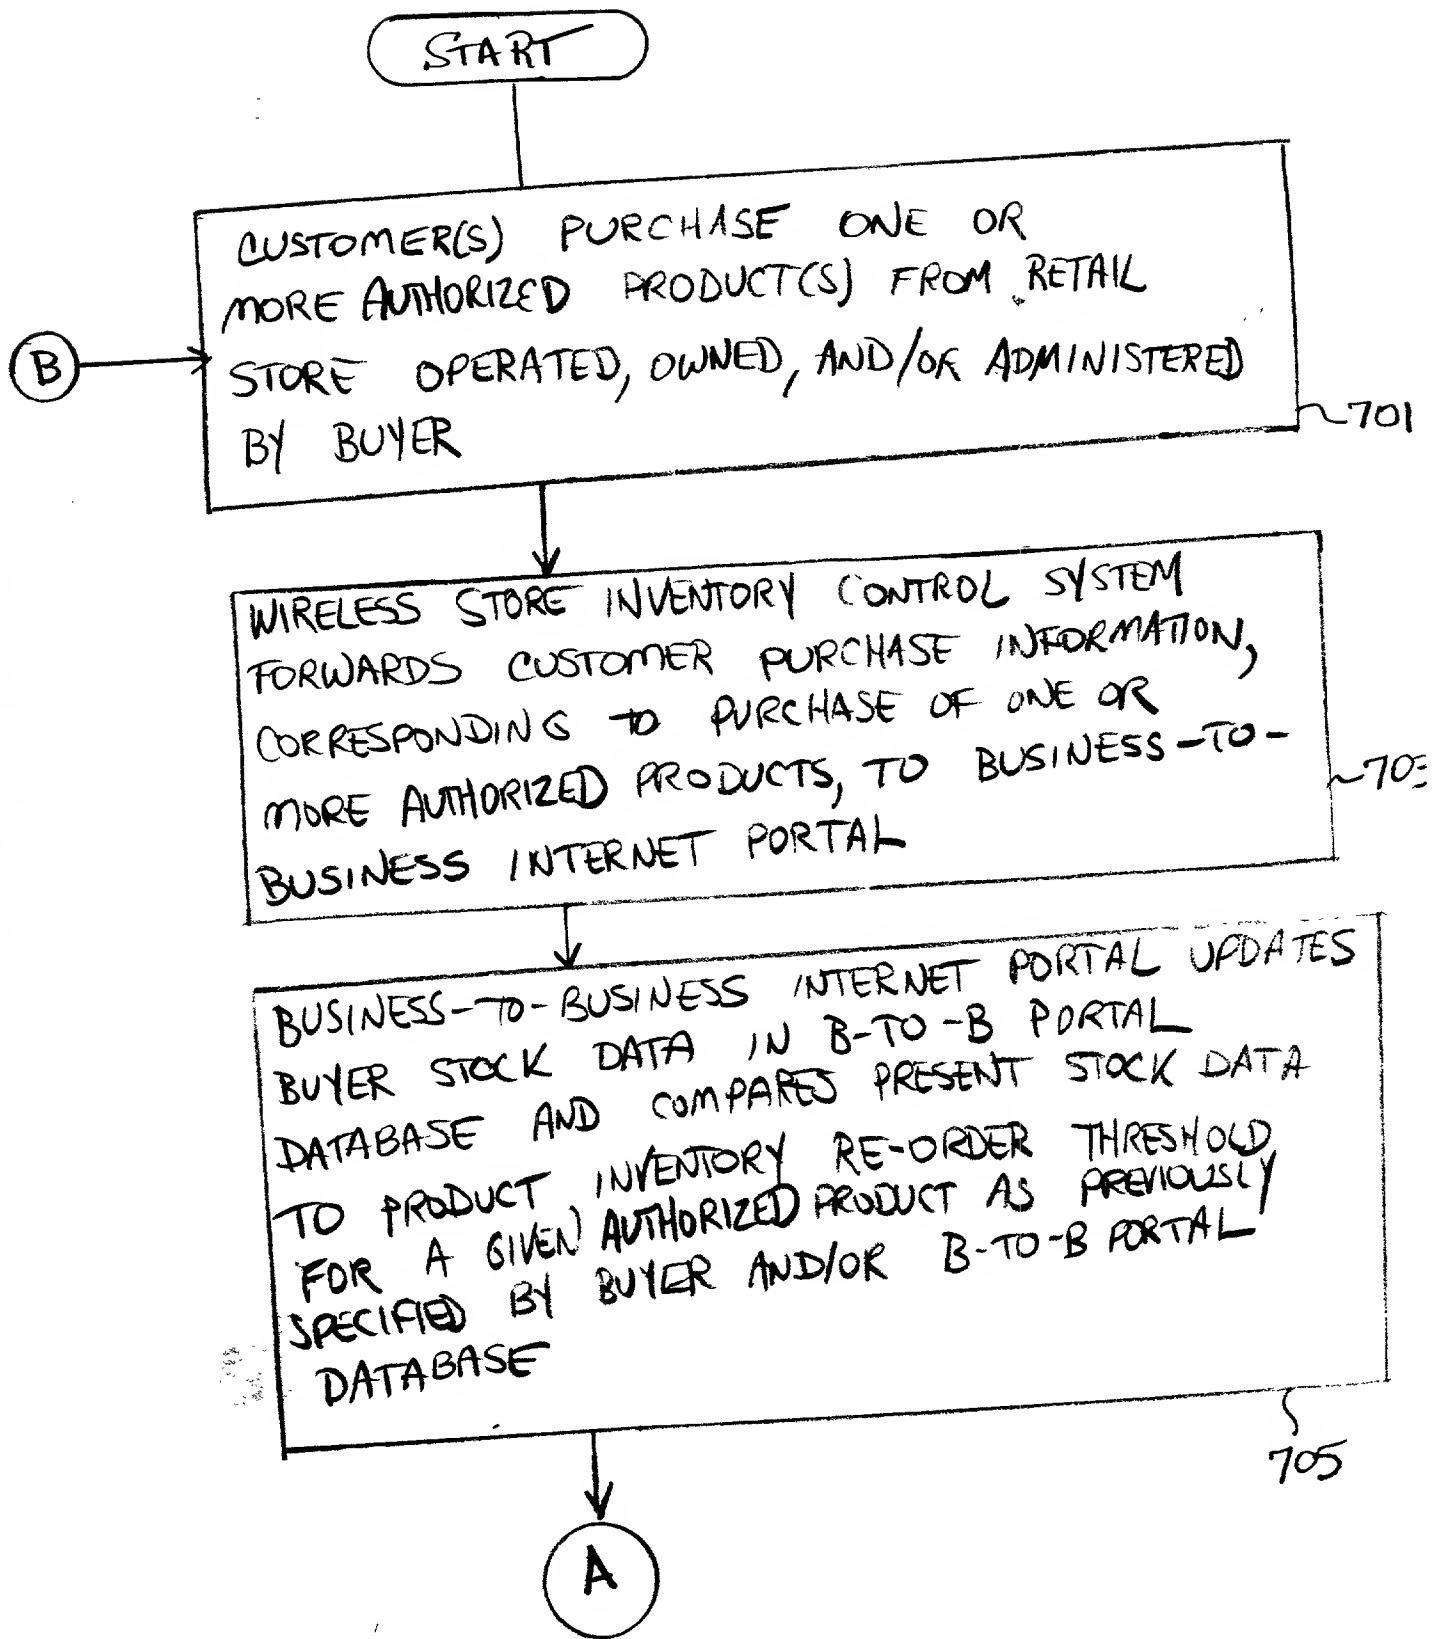 START
CUSTOMER(S) PURCHASE ONE OR
MORE AUTHORIZED PRODUCT(S) FROM RETAIL
B
STORE OPERATED, OWNED, AND/OR ADMINISTERED
BY BUYER
701
WIRELESS STORE INVENTORY CONTROL SYSTEM
FORWARDS CUSTOMER PURCHASE INFORMATION,
CORRESPONDING TO PURCHASE OF ONE OR
MORE AUTHORIZED PRODUCTS, TO BUSINESS-TO-
BUSINESS INTERNET PORTAL
703
BUSINESS-TO-BUSINESS INTERNET PORTAL UPDATES
BUYER STOCK DATA IN B-TO-B PORTAL
DATABASE AND COMPARES PRESENT STOCK DATA
TO PRODUCT INVENTORY RE-ORDER THRESHOLD
FOR A GIVEN AUTHORIZED PRODUCT AS PREVIOUSLY
SPECIFIED BY BUYER AND/OR B-TO-B PORTAL
DATABASE
705
A